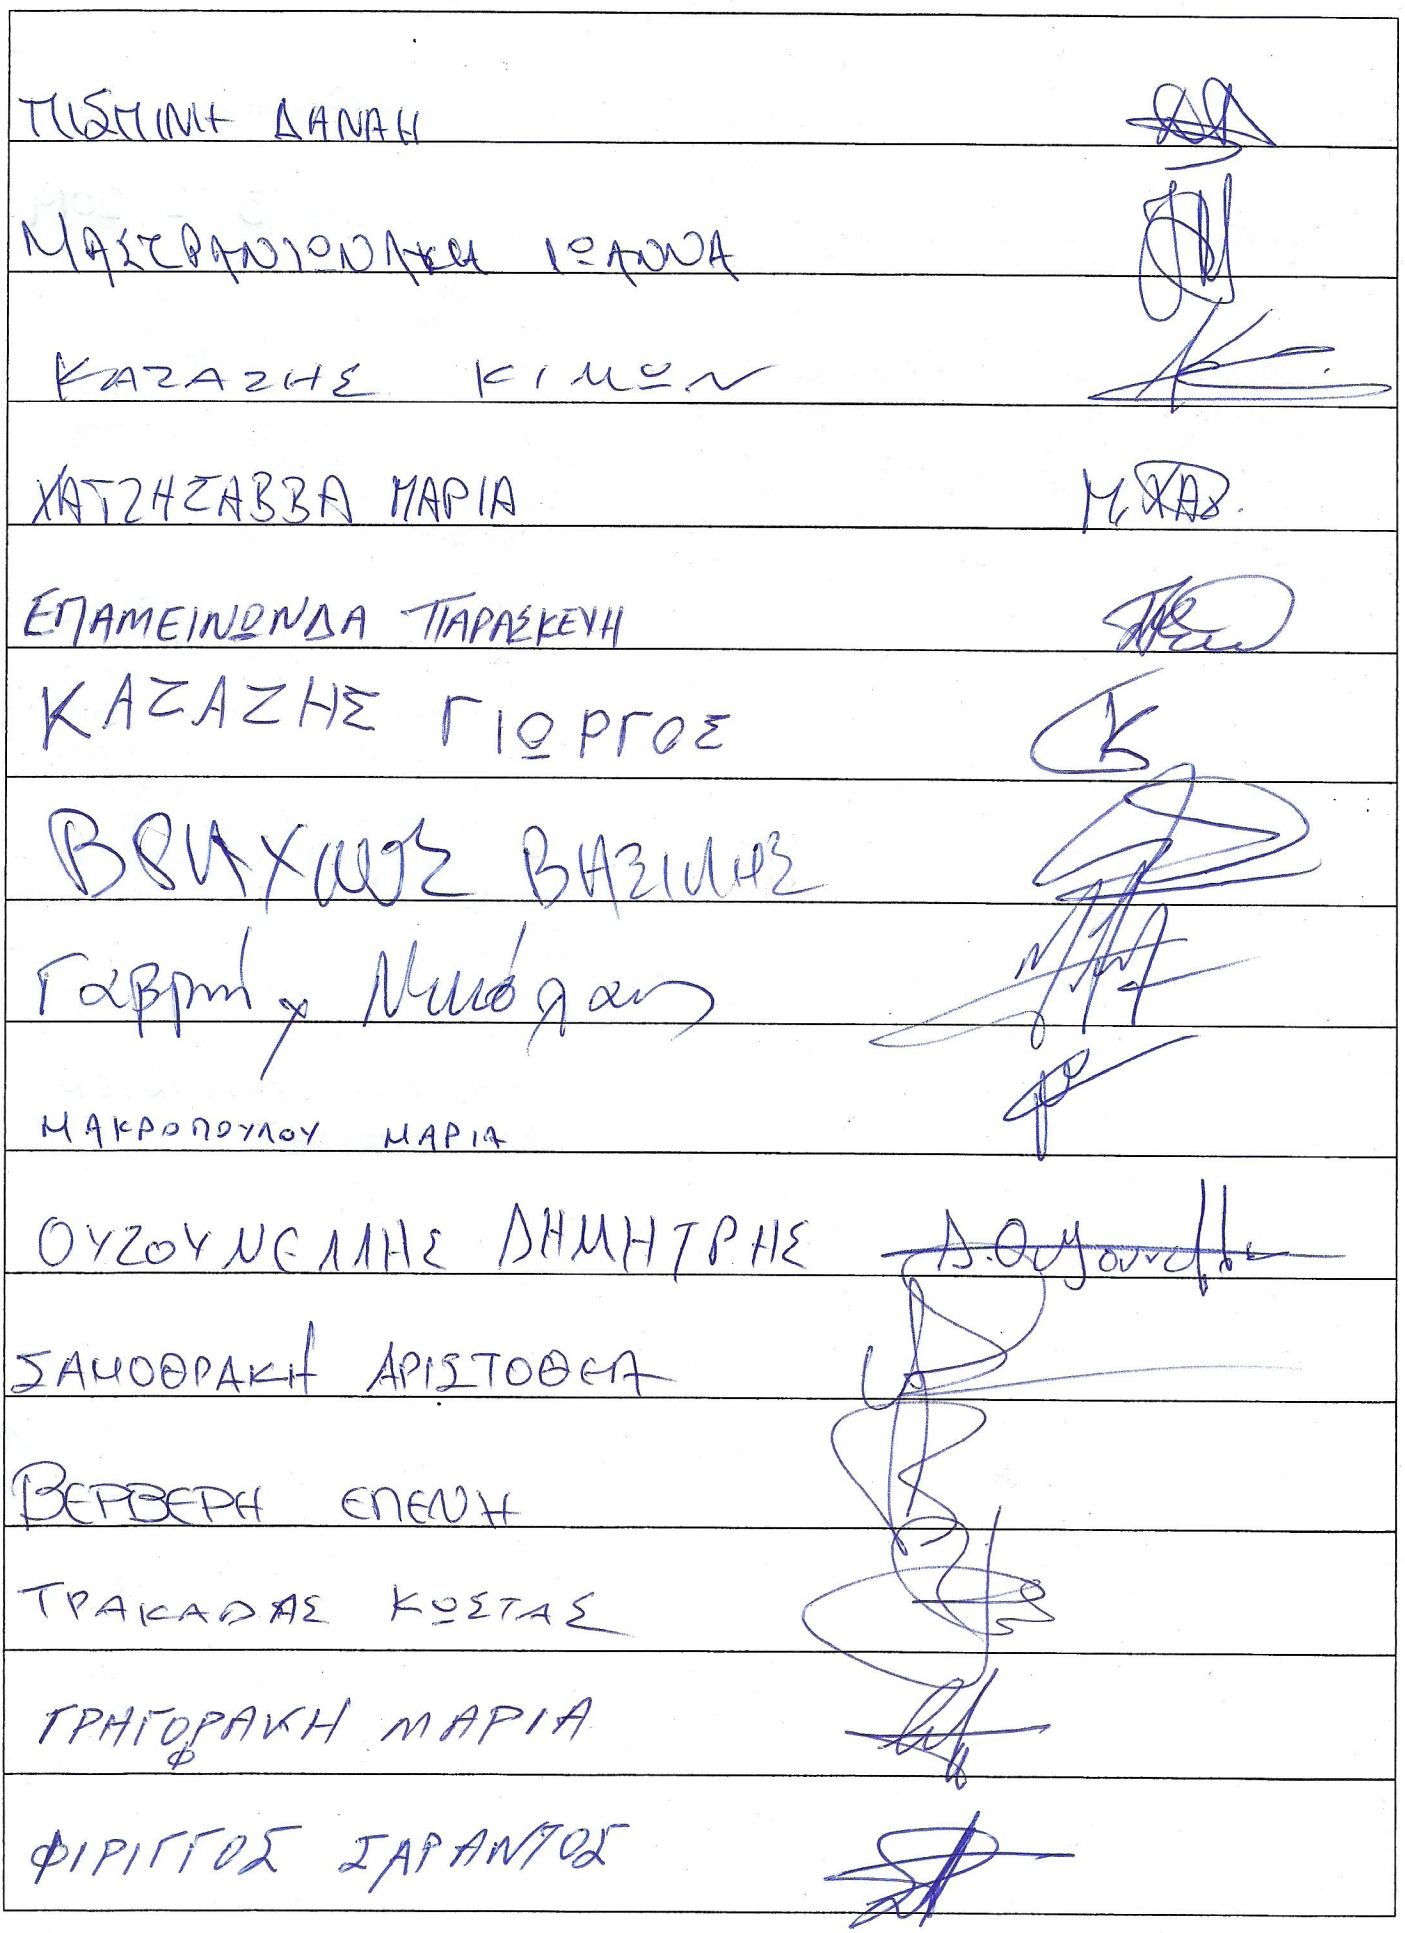 ΠΙΣΜΙΝΗ ΔΑΝΑΗ
ΜΑΣΤΡΑΝΤΩΝΑΚΗ ΙΩΑΝΝΑ
ΚΑΖΑΖΗΣ ΚΙΜΩΝ
ΧΑΤΖΗΣΑΒΒΑ ΜΑΡΙΑ Μ. ΧΑΒ.
ΕΠΑΜΕΙΝΩΝΔΑ ΠΑΡΑΣΚΕΥΗ
ΚΑΖΑΖΗΣ ΓΙΩΡΓΟΣ
ΒΑΣΙΛΗΣ
Γαβριήλ Νικόλαος
ΜΑΚΡΟΠΟΥΛΟΥ ΜΑΡΙΑ
ΟΥΖΟΥΝΕΛΛΗΣ ΔΗΜΗΤΡΗΣ
ΣΑΜΟΘΡΑΚΗ ΑΡΙΣΤΟΘΕΑ
ΒΕΡΒΕΡΗ ΕΛΕΝΗ
ΤΡΑΚΑΔΑΣ ΚΩΣΤΑΣ
ΓΡΗΓΟΡΑΚΗ ΜΑΡΙΑ
ΦΙΡΙΓΓΟΣ ΣΑΡΑΝΤΟΣ